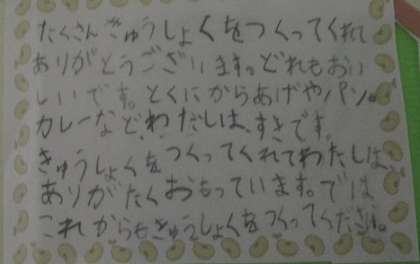 たくさんきゅうしょくをつくってくれて
ありがとうございます。どれもおい
しいです。とくにからあげやパン。
カレーなど、わたしは、すきです。
きゅうしょくをつくってくれてわたしは、
ありがたくおもっています。では
これからもきゅうしょくをつくってください。